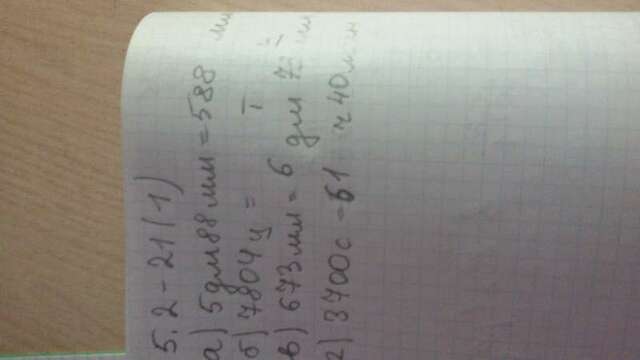 5.2-21(1)
а) 5дм88мм = 588 мм
б) 7804ц = т ц
в) 673мм = 6 дм 73 мм
г) 3700с = 61 ч 40мин